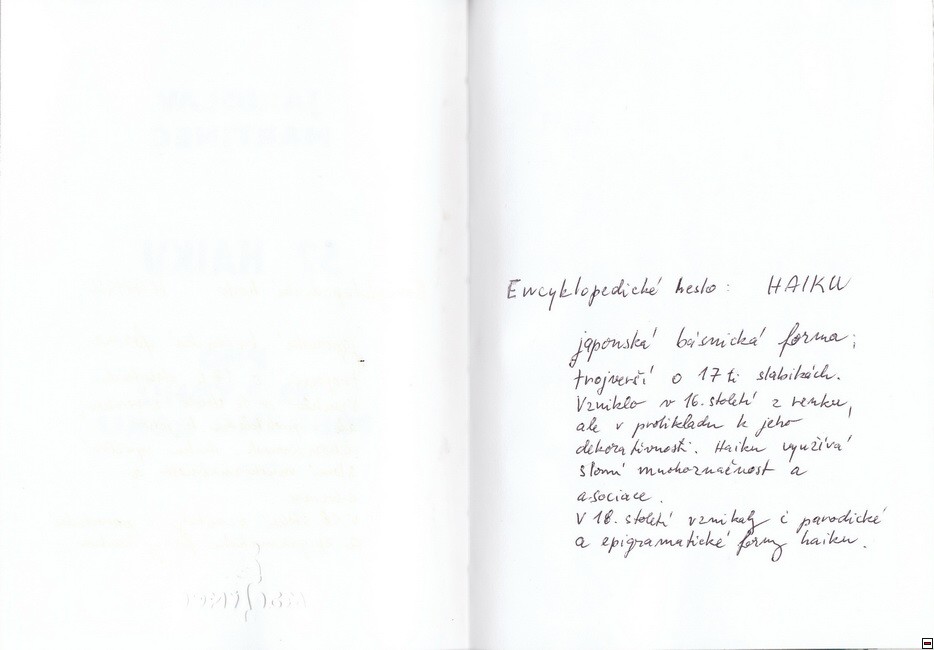 Encyklopedické heslo: HAIKU
japonská básnická forma;
trojverší o 17 ti slabikách.
Vzniklo v 16. století z renku,
ale v protikladu k jeho
dekorativnosti. Haiku využívá
slovní mnohoznačnost a
asociace.
V 18. století vznikaly i parodické
a epigramatické formy haiku.